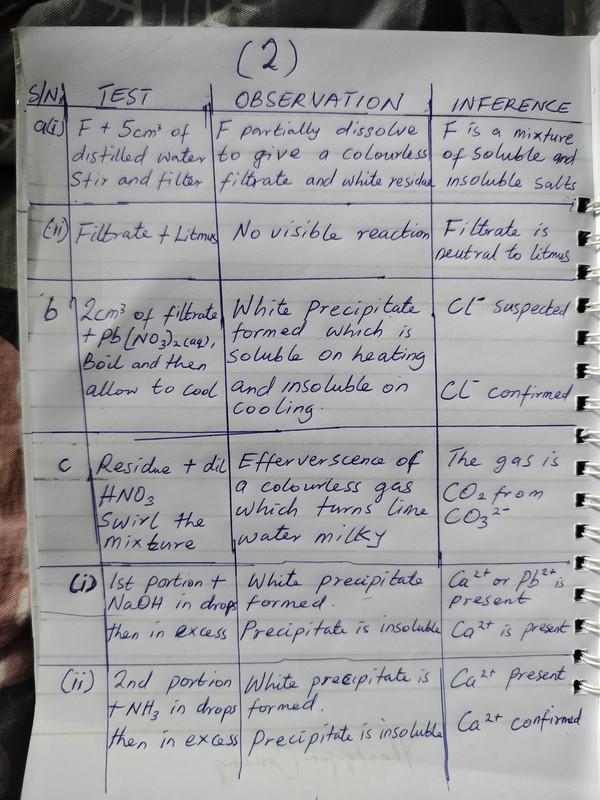 (2)
S/N TEST OBSERVATION INFERENCE
a(i) F + 5cm³ of F partially dissolve F is a mixture
distilled water to give a colourless of soluble and
Stir and filter filtrate and white residue insoluble salts
(ii) Filtrate + Litmus No visible reaction Filtrate is
neutral to litmus
b 2cm³ of filtrate White precipitate Cl⁻ suspected
+ Pb(NO₃)₂(aq), formed which is
Boil and then soluble on heating
allow to cool and insoluble on Cl⁻ confirmed
cooling.
c Residue + dil Efferverscence of The gas is
HNO₃ a colourless gas CO₂ from
Swirl the which turns lime CO₃²⁻
mixture water milky
(i) 1st portion + White precipitate Ca²⁺ or Pb²⁺ is
NaOH in drops formed. present
then in excess Precipitate is insoluble Ca²⁺ is present
(ii) 2nd portion White precipitate is Ca²⁺ present
+ NH₃ in drops formed. Ca²⁺ confirmed
then in excess Precipitate is insoluble